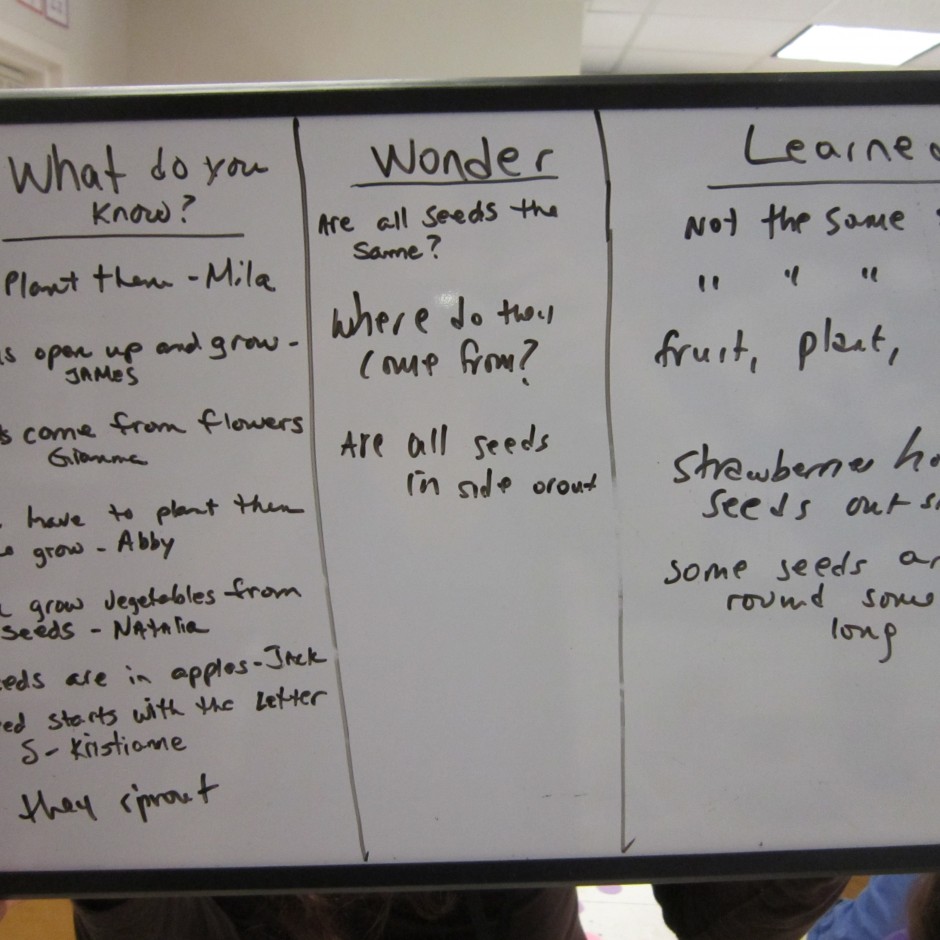 What do you
Know?
Plant them - Mila
s open up and grow -
JAMES
s come from flowers
Gianna
have to plant them
grow - Abby
grow vegetables from
seeds - Natalia
eds are in apples - Jack
ed starts with the letter
S - Kristianne
they sprout
Wonder
Are all seeds the
Same?
Where do they
come from?
Are all seeds
in side or out
Learne
Not the same
" " "
fruit, plant,
Strawberries ha
seeds out si
some seeds ar
round some
long